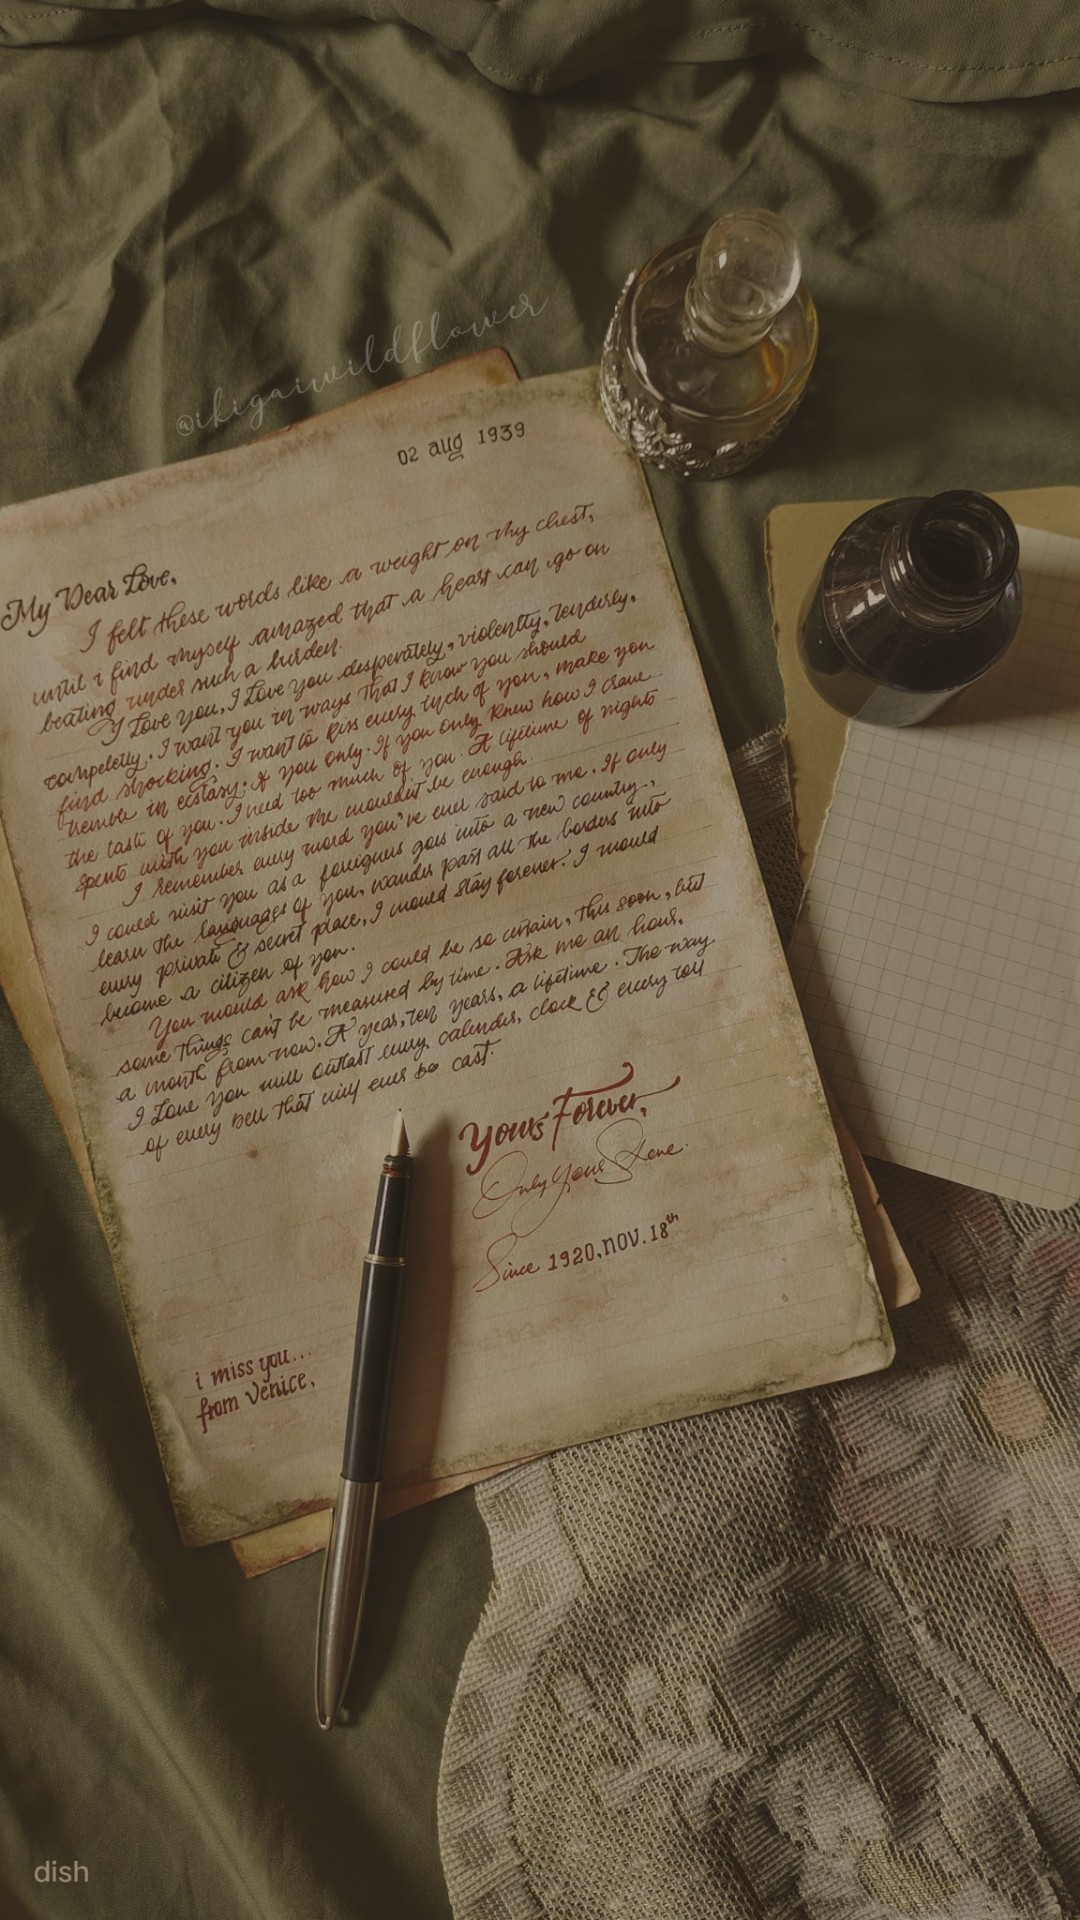 @ikigaiwildflower
02 aug 1939
My Dear Love,
I felt these words like a weight on my chest,
until i find myself amazed that a heart can go on
beating under such a burden.
I Love you, I Love you desperately, violently, tenderly,
compeletly. I want you in ways that I know you should
find shocking. I want to kiss every inch of you, make you
tremble in ecstasy. If you only. If you only knew how I crave
the taste of you. I need too much of you. A lifetime of nights
spent with you inside me wouldn't be enough.
I remember every word you've ever said to me. If only
I could visit you as a foreigner goes into a new country,
learn the languages of you, wander past all the borders into
every private & secret place, I would stay forever. I would
become a citizen of you.
You would ask how I could be so certain, this soon, but
some things can't be measured by time. Ask me an hour,
a month from now. A year, ten years, a lifetime. The way
I Love you will outlast every calender, clock & every toll
of every bell that will ever be cast.
Yours Forever,
Only Yours
Since 1920, NOV. 18th
i miss you...
from Venice,
dish